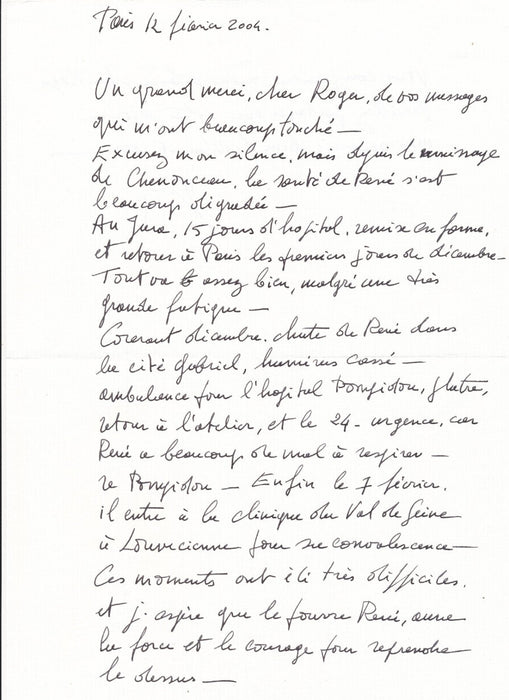 Paris 12 février 2004.
Un grand merci, cher Roger, de vos messages
qui m'ont beaucoup touché —
Excusez mon silence, mais depuis le vernissage
de Chenonceau, la santé de René s'est
beaucoup dégradée —
Au Jura, 15 jours d'hôpital, remise en forme,
et retour à Paris les premiers jours de décembre —
Tout va assez bien, malgré une très
grande fatigue —
Courant décembre, chute de René dans
la cité Gabriel, humérus cassé —
ambulance pour l'hôpital Pompidou, plâtre,
retour à l'atelier, et le 24 - urgence, car
René a beaucoup de mal à respirer —
re Pompidou — Enfin le 7 février.
il entre à la clinique du Val de Seine
à Louvecienne pour sa convalescence —
Ces moments ont été très difficiles.
et j'espère que le pauvre René, aura
la force et le courage pour reprendre
le dessus —